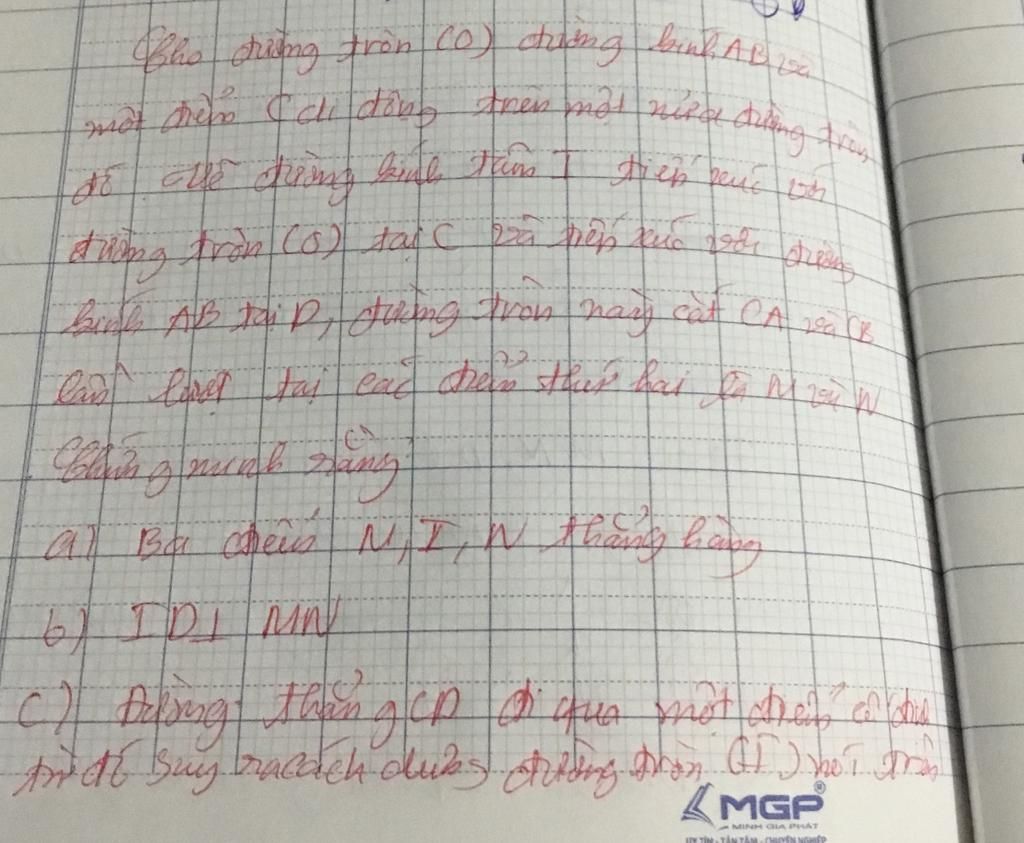 Cho đường tròn (O) đường kính AB và
một điểm C di động trên một nửa đường tròn
đó đường tâm I tiếp xúc với
đường tròn (O) tại C và tiếp xúc với đường
kính AB tại D, đường tròn này cắt CA và CB
lần lượt tại các điểm thứ hai là M và N
Chứng minh rằng
a) Ba điểm M, I, N thẳng hàng
b) ID ⊥ MN
c) Đường thẳng CD đi qua một điểm cố định
từ đó suy ra cách dựng đường tròn (I) nói trên
MGP
MINH GIA PHÁT
UY TÍN - TẬN TÂM - CHUYÊN NGHIỆP